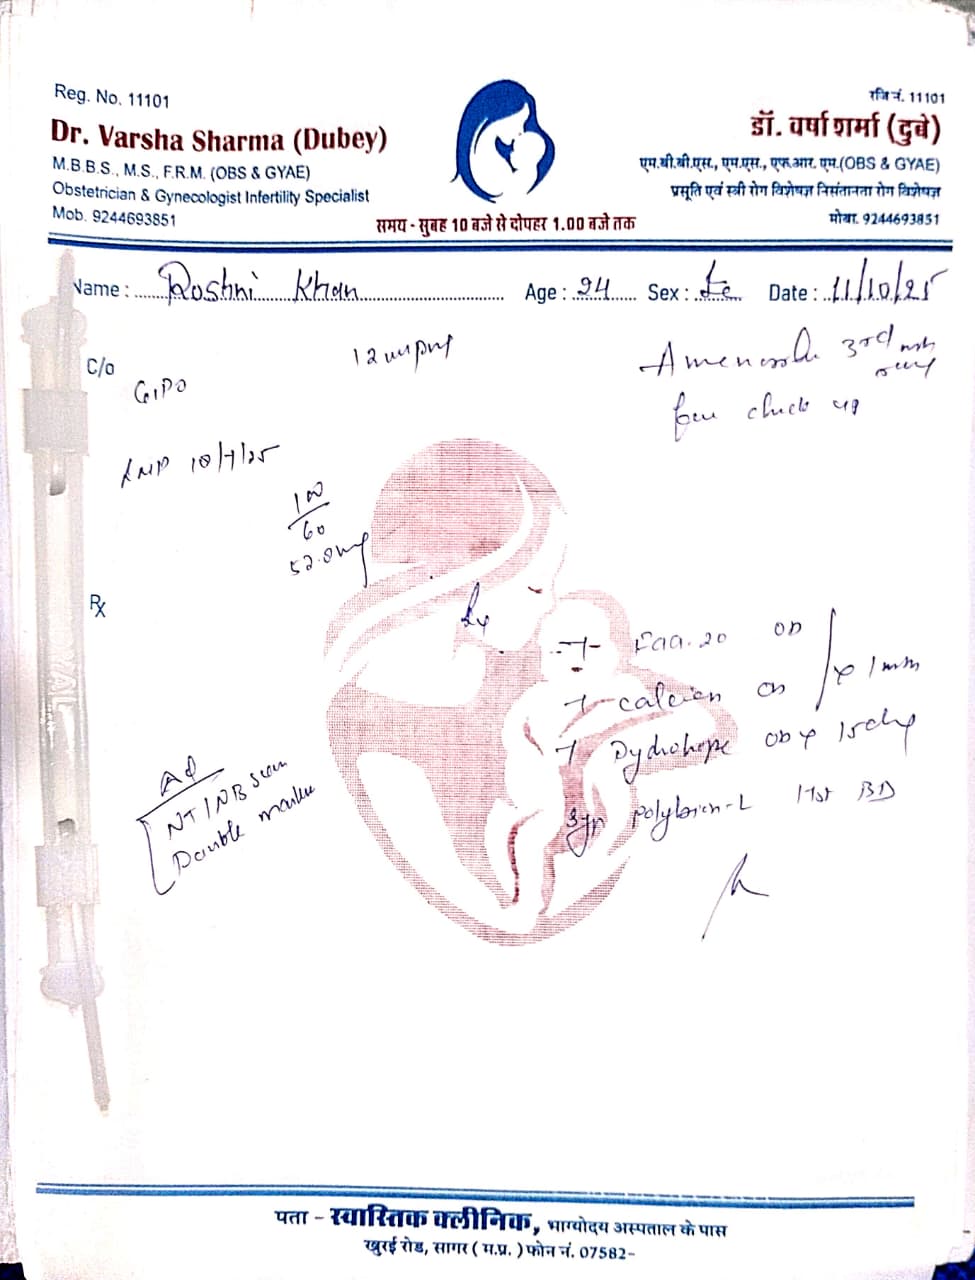 Reg. No. 11101
Dr. Varsha Sharma (Dubey)
M.B.B.S., M.S., F.R.M. (OBS & GYAE)
Obstetrician & Gynecologist Infertility Specialist
Mob. 9244693851
रजि नं. 11101
डॉ. वर्षा शर्मा (दुबे)
एम.बी.बी.एस., एम.एस., एफ.आर. एम.(OBS & GYAE)
प्रसूति एवं स्त्री रोग विशेषज्ञ निसंतानता रोग विशेषज्ञ
मोबा. 9244693851
समय - सुबह 10 बजे से दोपहर 1.00 बजे तक
Name : Roshni Khan Age : 24 Sex : Fe Date : 11/10/25
C/o
G1P0
3rd
for check up
LMP 10/7/25
100
60
Rx
T- OD
T- calcium
T Dydrohope OD
Syp BD
Ad
NT/NB scan
Double marker
पता - स्वास्तिक क्लीनिक, भाग्योदय अस्पताल के पास
खुरई रोड, सागर ( म.प्र. ) फोन नं. 07582-